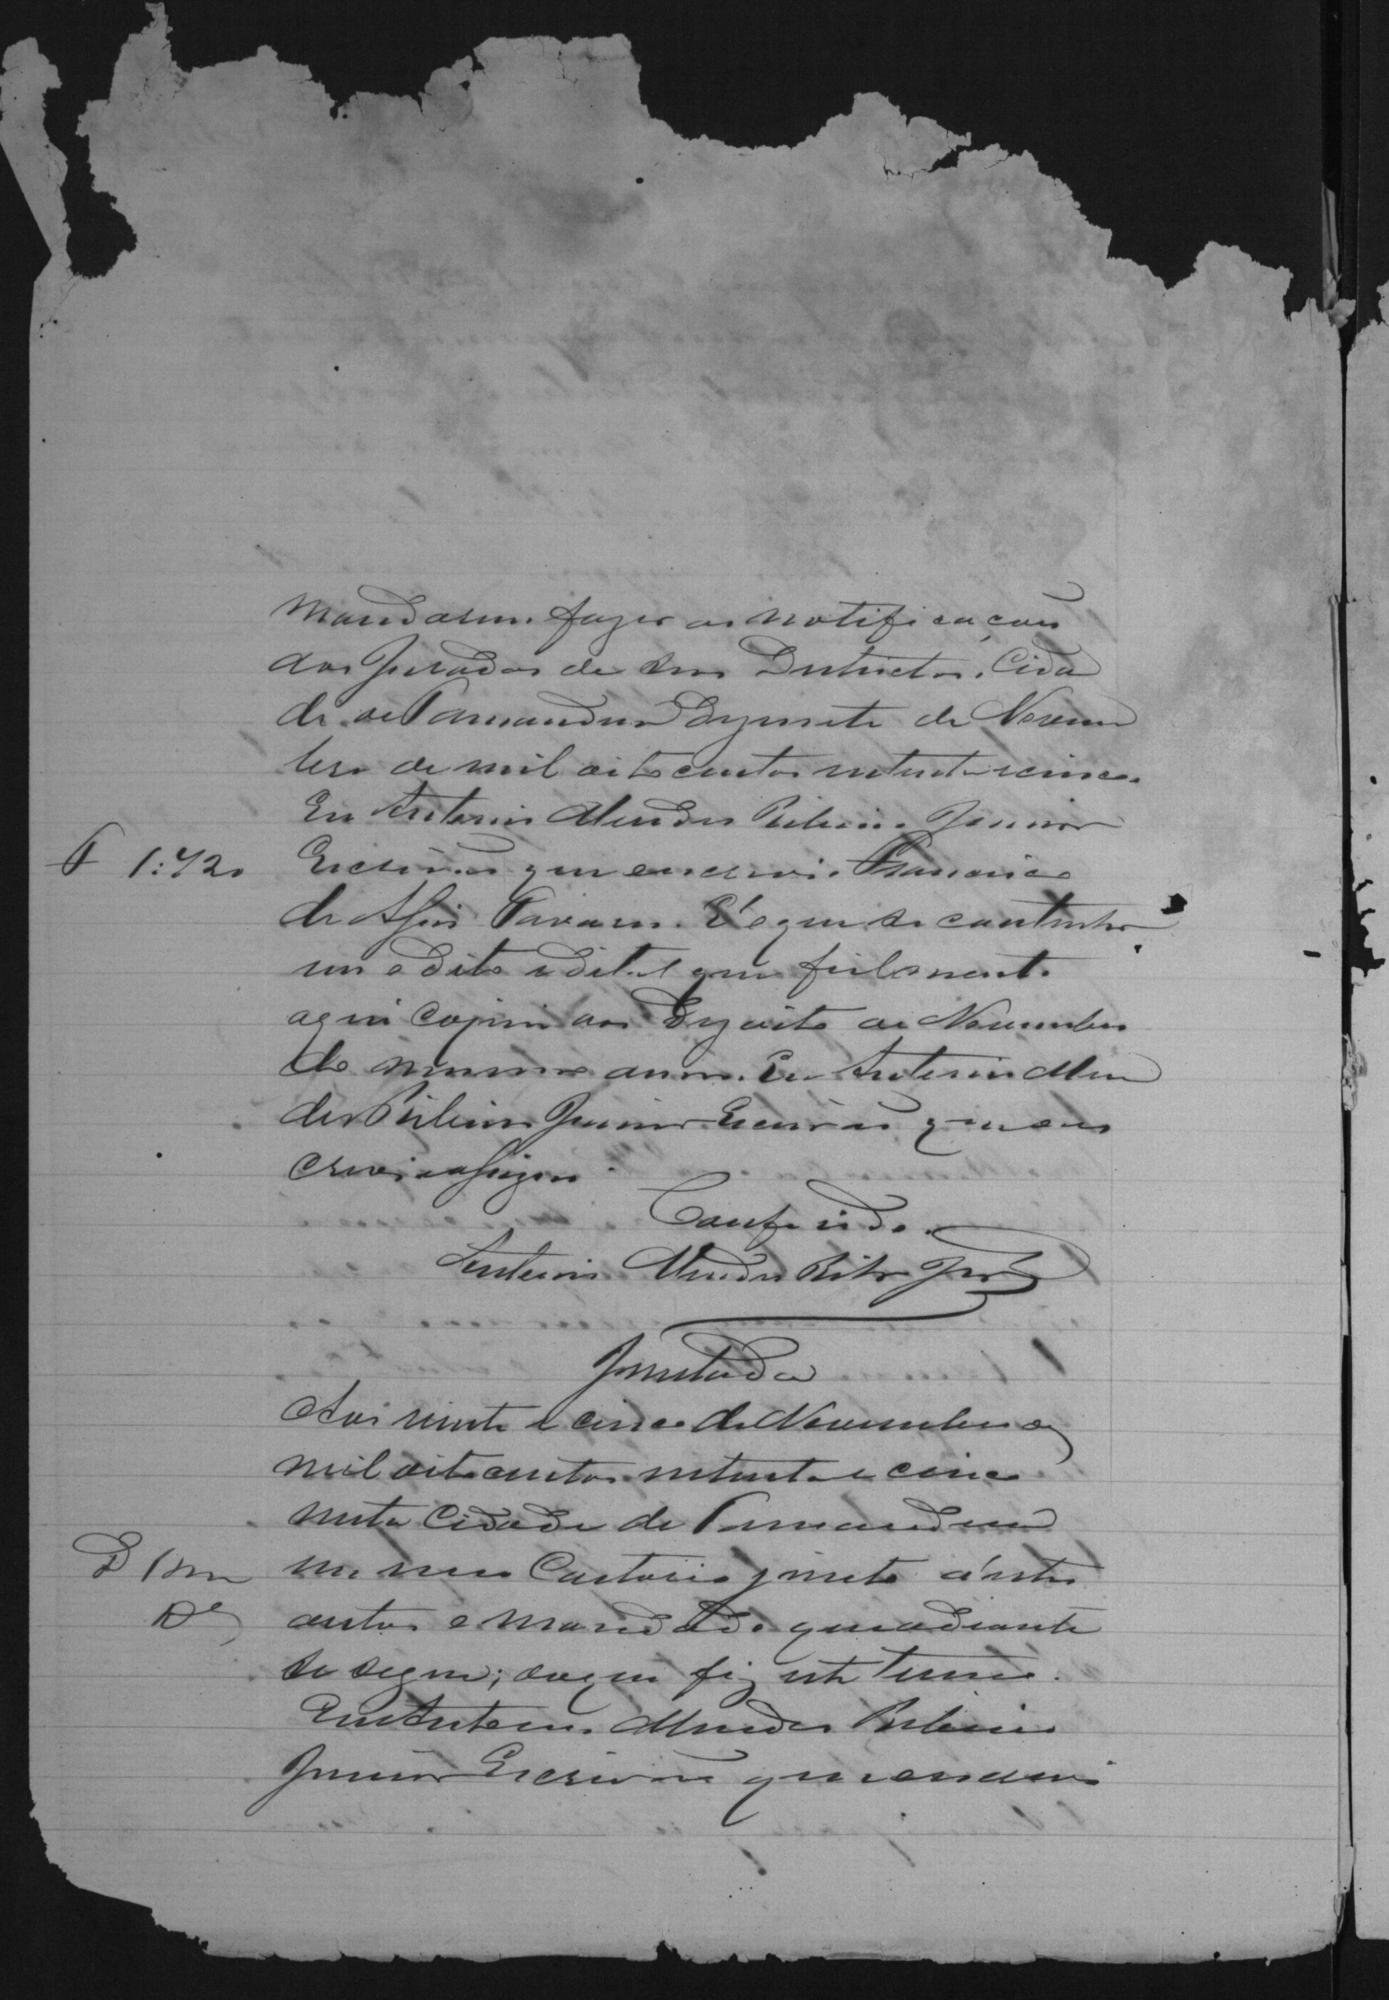 mandarem fazer as notificações
dos Jurados de seus Districtos. Cida
de de Tamanduá Dezesete de Novem
bro de mil oito centos setenta e cinco.
Eu Antonio Mendes Ribeiro Junior
Escrivão que escrevi. Francisco
de Assis Tavares. É o que se continha
em o dito edital que fielmente
aqui copiei aos Dezoito de Novembro
do mesmo anno. Eu Antonio Men
des Ribeiro Junior Escrivão que es
crevi e assigno.
F 1:720
Conferido.
Antonio Mendes Ribro Jor
Juntada
Aos vinte e cinco de Novembro de
mil oito centos setenta e cinco
nesta Cidade de Tamanduá
em meu Cartorio junto a estes
autos o mandado que adiante
se segue; do que fiz este termo.
Eu Antonio Mendes Ribeiro
Junior Escrivão que escrevi